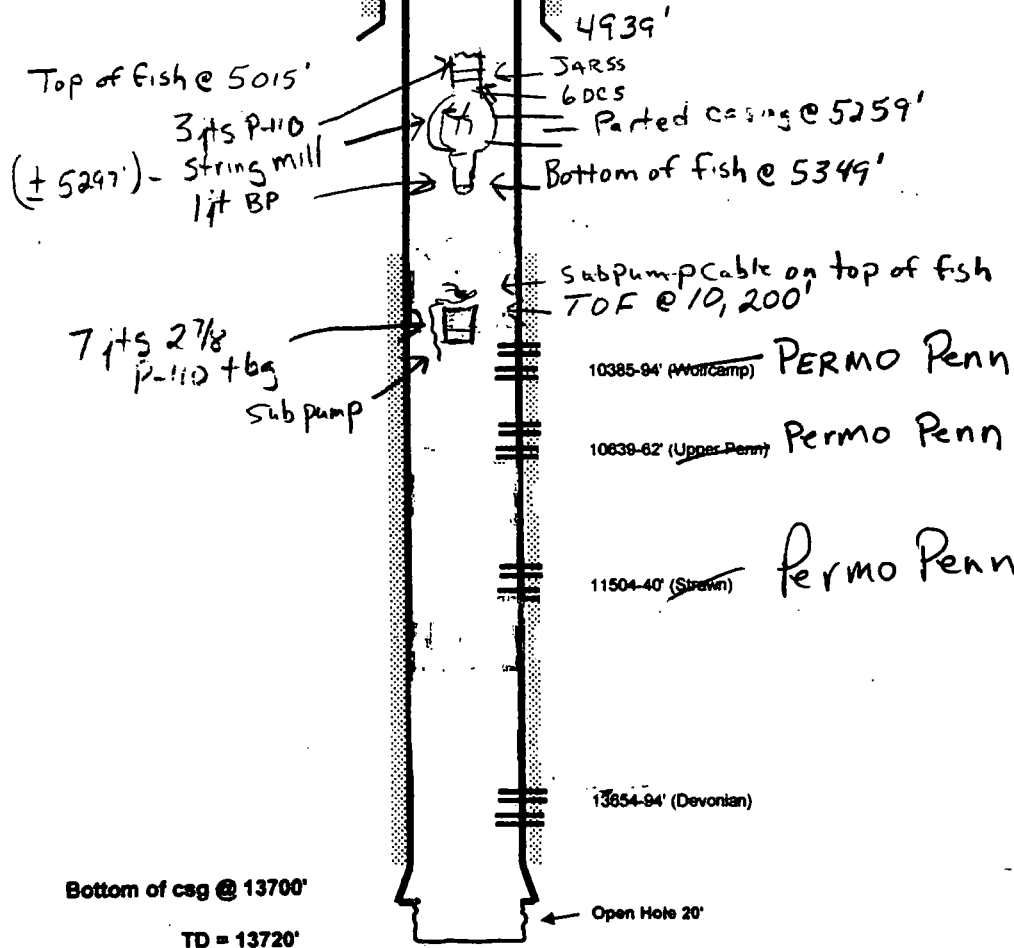 4939'
Top of fish @ 5015'
JARSS
6 DCS
3 jts P-110
Parted casing @ 5259'
string mill
(± 5297') -
Bottom of fish @ 5349'
1 jt BP
subpump cable on top of fish
TOF @ 10,200'
7 jts 2 7/8
P-110 + bg
sub pump
10385-94' (Wolfcamp) PERMO Penn
10639-62' (Upper Penn) Permo Penn
11504-40' (Strawn) Permo Penn
13654-94' (Devonian)
Bottom of csg @ 13700'
Open Hole 20'
TD = 13720'